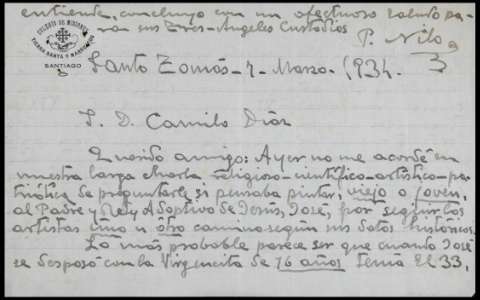 entiende, concluyo con un afectuoso saludo pa-
ra sus tres Angeles Custodios
P. Nilo
3
COLEGIO DE MISIONES
TIERRA SANTA Y MARRUECOS
SANTIAGO
Santo Tomás - 7 - Marzo - 1934.
S. D. Camilo Díaz
Querido amigo: Ayer no me acordé en
nuestra larga charla religioso-científico-artístico-pa-
triótica de preguntarle si pensaba pintar, viejo o joven,
al Padre y Rey Adoptivo de Jesús, José, por seguir los
artistas uno u otro camino según sus datos históricos.
Lo más probable parece ser que cuando José
se desposó con la Virgencita de 16 años tenía El 33,